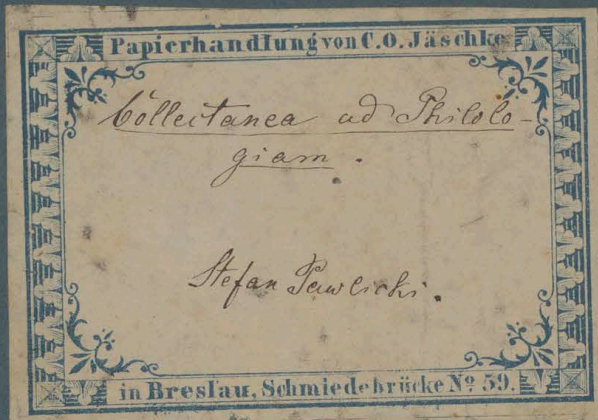 Papierhandlung von C.O. Jäschke
Collectanea ad Philolo-
giam.
Stefan Pawlicki.
in Breslau, Schmiedebrücke No 59.